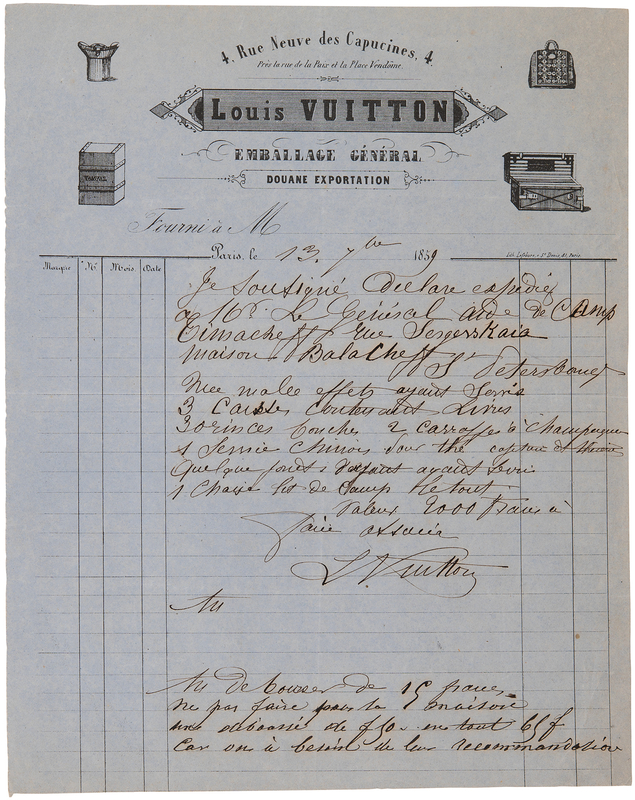 4, Rue Neuve des Capucines, 4.
Près la rue de la Paix et la Place Vendôme.
Louis VUITTON
EMBALLAGE GÉNÉRAL
DOUANE EXPORTATION
Fourni à M
Paris, le 13 7bre 1859
Marque Nº Mois Date
Je soussigné declare expedier
a Mr Le Général aide de Camp
Timacheff rue Sergevskaia
maison Balacheff St Petersbourg
Une malle effets ayant servis
3 caisses contenant Livres
30 rinces bouches 2 carroffes à Champagne
1 Servie Chinois pour thé
quelque ayant servi
1 Chaise lit de Camp le tout
Valeur 2000 francs à
faire
L Vuitton
Au
15 francs
ne pas faire pour la maison
une de f50 en tout 65 f
car on à besoin de leur recommandation